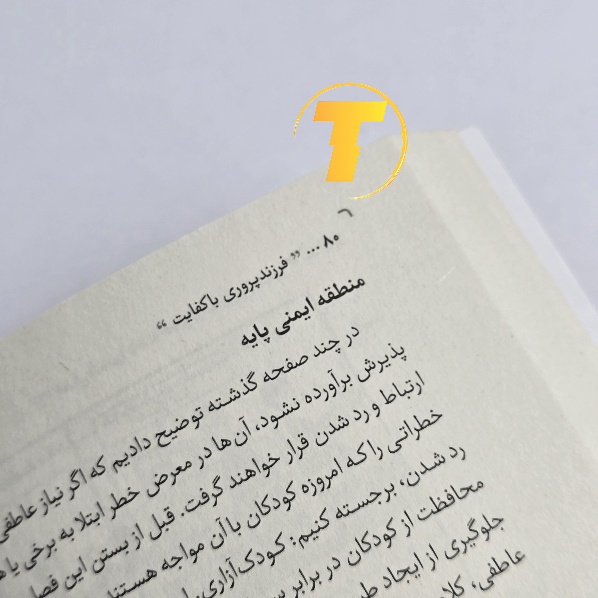 T
۸۰ ... " فرزندپروری باکفایت "
منطقه ایمنی پایه
در چند صفحه گذشته توضیح دادیم که اگر نیاز عاطفی
پذیرش برآورده نشود، آن‌ها در معرض خطر ابتلا به برخی یا
ارتباط و رد شدن قرار خواهند گرفت. قبل از بستن این فصل
خطراتی را که امروزه کودکان با آن مواجه هستند
رد شدن، برجسته کنیم: کودک‌آزاری،
محافظت از کودکان در برابر
جلوگیری از ایجاد
عاطفی،